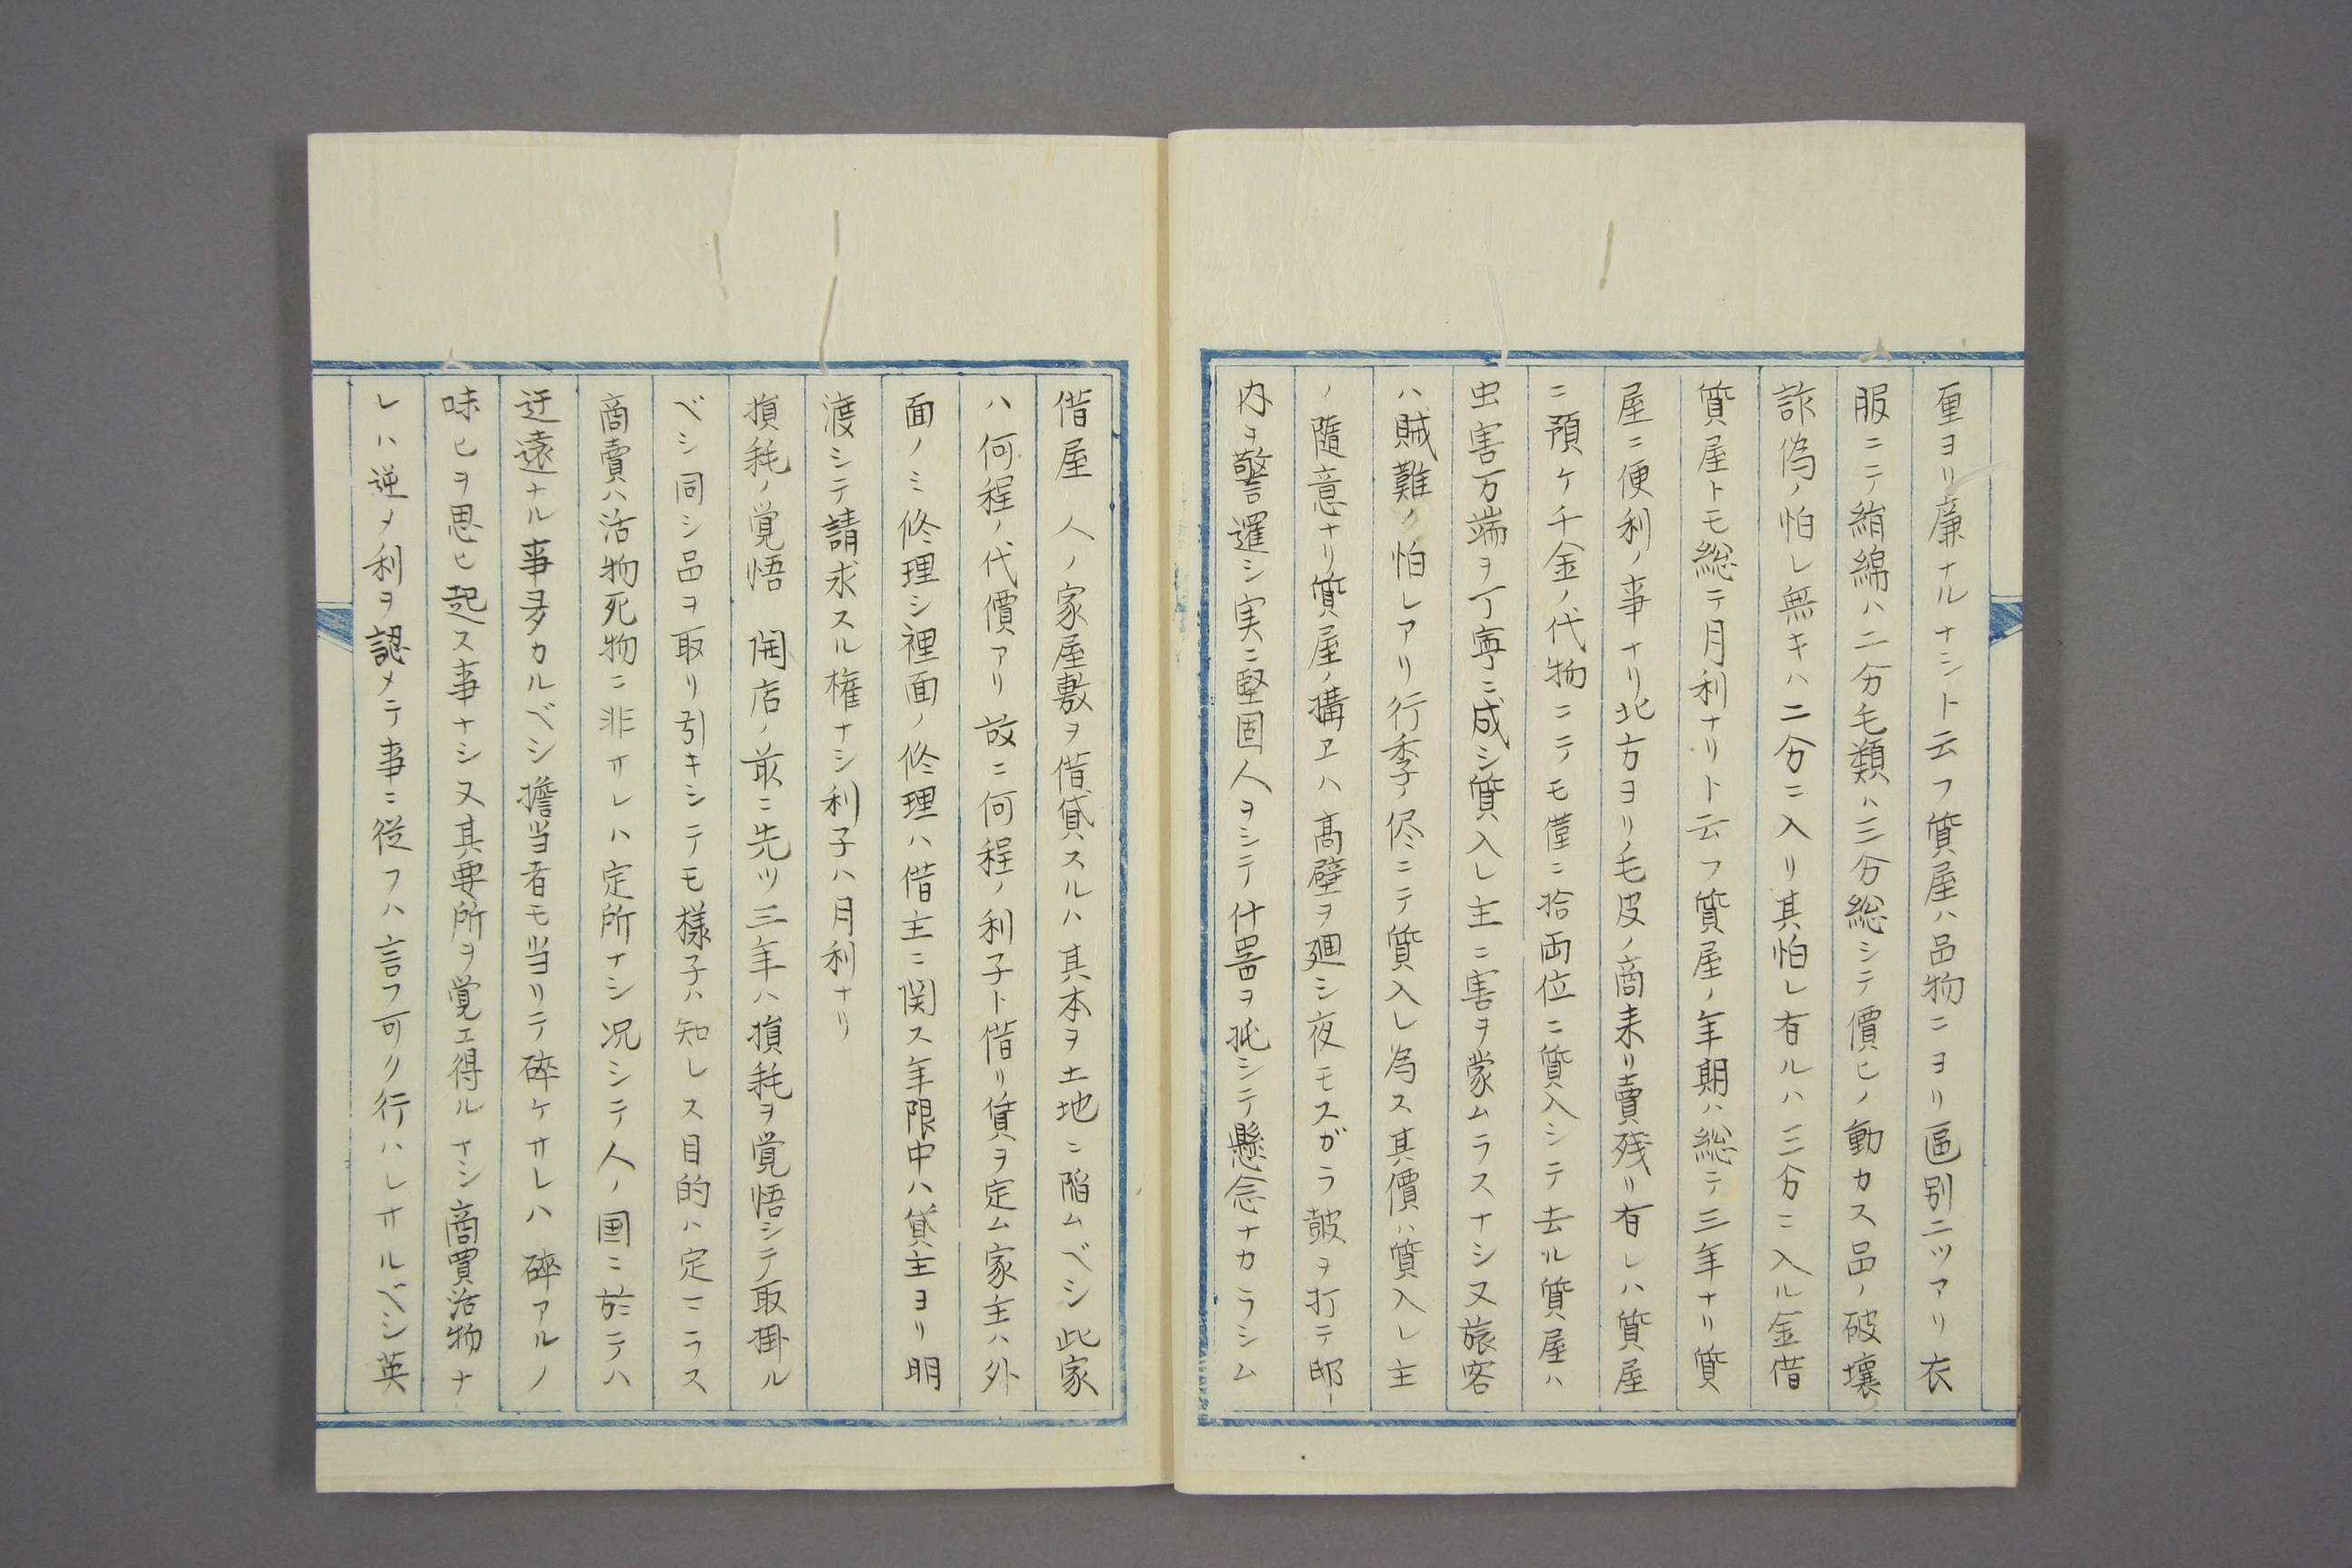 厘ヨリ廉ナルナシト云フ質屋ハ品物ニヨリ區别ニツアリ衣
服ニテ絹綿ハ二分毛類ハ三分総シテ價ヒノ動カス品ノ破壞
詐偽ノ怕レ無キハ二分ニ入リ其怕レ有ルハ三分ニ入ル金借
質屋トモ総テ月利ナリト云フ質屋ノ年期ハ総テ三年ナリ質
屋ニ便利ノ事ナリ北方ヨリ毛皮ノ商来リ賣残リ有レハ質屋
ニ預ケ千金ノ代物ニテモ僅ニ拾両位ニ質入シテ去ル質屋ハ
虫害万端ヲ丁寧ニ成シ質入レ主ニ害ヲ蒙ムラスナシ又旅客
ハ賊難ノ怕レアリ行李ノ侭ニテ質入レ為ス其價ハ質入レ主
ノ隨意ナリ質屋ノ構ヱハ髙壁ヲ廻シ夜モスガラ皷ヲ打テ邸
内ヲ警邏シ実ニ堅固人ヲシテ什噐ヲ抵シテ懸念ナカラシム
借屋　人ノ家屋敷ヲ借貸スルハ其本ヲ土地ニ陷ムベシ此家
ハ何程ノ代價アリ故ニ何程ノ利子ト借リ賃ヲ定ム家主ハ外
面ノミ修理シ裡面ノ修理ハ借主ニ関ス年限中ハ貸主ヨリ明
渡シテ請求スル権ナシ利子ハ月利ナリ
損耗ノ覚悟　開店ノ前ニ先ツ三年ハ損耗ヲ覚悟シテ取掛ル
ベシ同シ品ヲ取リ引キシテモ様子ハ知レス目的ハ定ニラス
商賣ハ活物死物ニ非サレハ定所ナシ况シテ人ノ国ニ於テハ
迂遠ナル事多カルベシ擔当者モ当リテ碎ケサレハ碎アルノ
味ヒヲ思ヒ起ス事ナシ又其要所ヲ覚エ得ルナシ商賈活物ナ
レハ逆メ利ヲ認メテ事ニ從フハ言フ可ク行ハレサルベシ英